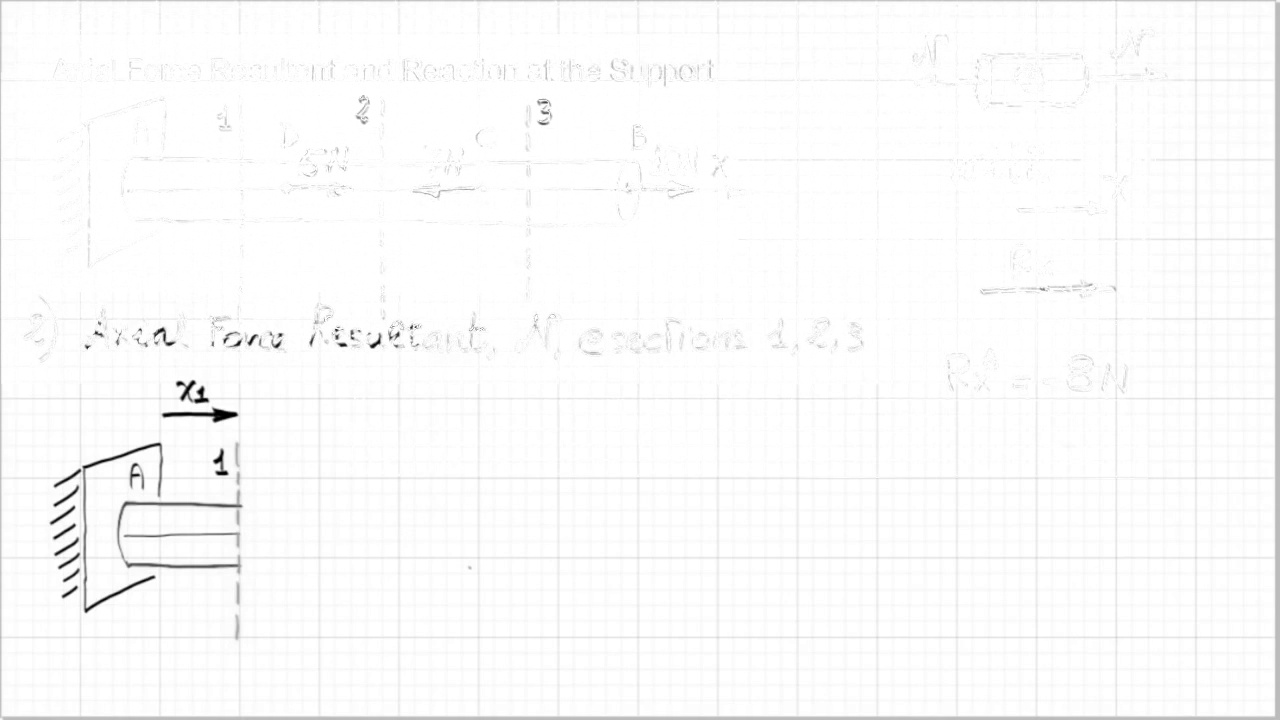 Axial Force Resultant and Reaction at the Support
N N
1 2 3
A D C B
5N 7N 10N X
X
Rx
2) Axial Force Resultant, N, @ sections 1, 2, 3
RxA = -8N
X1
1
A